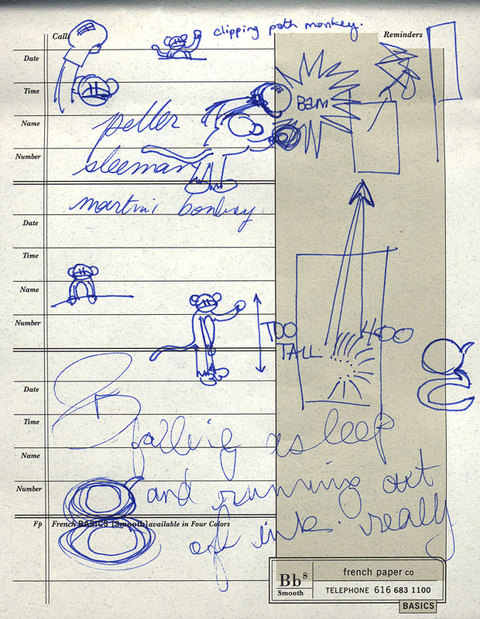 Calls
clipping path monkey.
Reminders
Date
Time
BAM
Name
peller
Number
sleeman
martini bombay
Date
Time
Name
Number
TOO TALL
400
g
Date
Time
falling asleep
Name
Number
and running out
Fp French BASICS (Smooth) available in Four Colors
of ink. really
Bb8 Smooth
french paper co
TELEPHONE 616 683 1100
BASICS